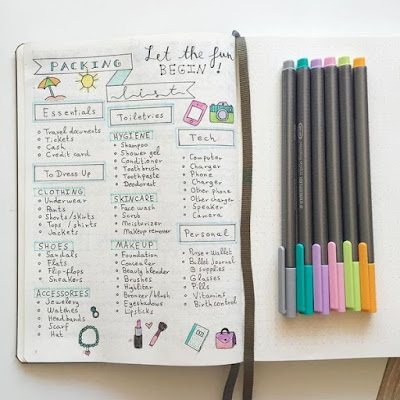 PACKING
list
Let the fun
BEGIN!
Essentials
Travel documents
Tickets
Cash
Credit card
To Dress Up
CLOTHING
Underwear
Pants
Shorts/skirts
Tops / shirts
Jackets
SHOES
Sandals
Flats
Flip-flops
Sneakers
ACCESSORIES
Jewelry
Watches
Headbands
Scarf
Hat
Toiletries
HYGIENE
Shampoo
Shower gel
Conditioner
Toothbrush
Toothpaste
Deodorant
SKINCARE
Face wash
Scrub
Moisturizer
Makeup remover
MAKEUP
Foundation
Concealer
Beauty blender
Brushes
Highliter
Bronzer/blush
Eyeshadows
Lipsticks
Tech
Computer
Charger
Phone
Charger
Other phone
Other charger
Speaker
Camera
Personal
Purse + Wallet
Bullet Journal
@ supplies
Glasses
Pills
Vitamins
Birth control